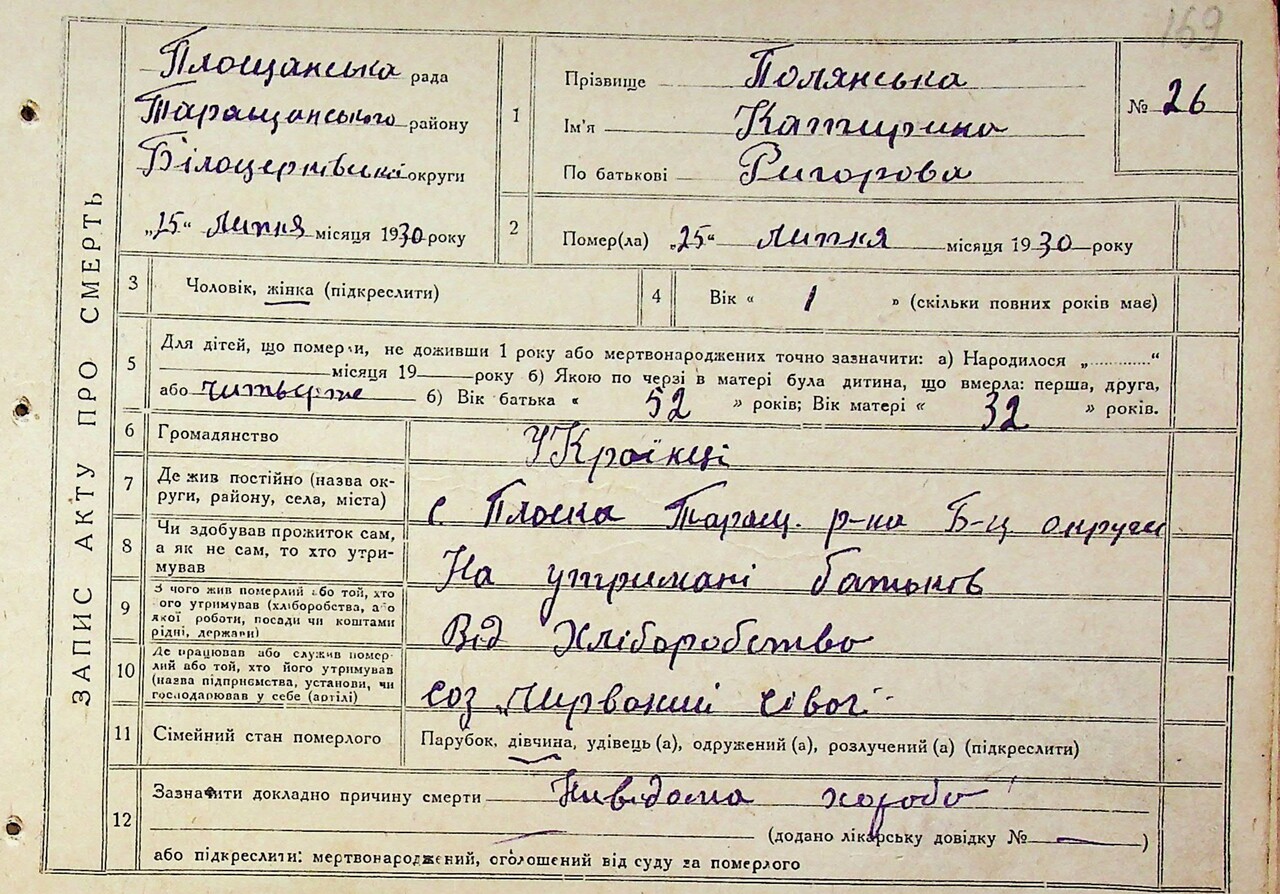 169
ЗАПИС АКТУ ПРО СМЕРТЬ
Площанська рада
Таращанського району
Білоцерківські округи
„25“ липня місяця 1930 року
1
Прізвище Полянська
Ім'я Катирина
По батькові Ригорова
№ 26
2
Помер(ла) „25“ липня місяця 1930 року
3 Чоловік, жінка (підкреслити)
4 Вік « 1 » (скільки повних років має)
5 Для дітей, що померли, не доживши 1 року або мертвонароджених точно зазначити: а) Народилося „..........“
місяця 19 року б) Якою по черзі в матері була дитина, що вмерла: перша, друга,
або читьверте б) Вік батька « 52 » років; Вік матері « 32 » років.
6 Громадянство Українці
7 Де жив постійно (назва ок-
руги, району, села, міста)
с. Плоска Таращ. р-на Б-ц округи
8 Чи здобував прожиток сам,
а як не сам, то хто утри-
мував
На утримані батьків
9 З чого жив померлий або той, хто
ого утримував (хліборобства, або
якої роботи, посади чи коштами
рідні, держави)
Від Хліборобство
10 Де працював або служив помер-
лий або той, хто його утримував
(назва підприємства, установи, чи
господарював у себе (артілі)
соз „Чирвоний
11 Сімейний стан померлого Парубок, дівчина, удівець (а), одружений (а), розлучений (а) (підкреслити)
12 Зазначити докладно причину смерти Нивідома хороба
(додано лікарську довідку № — )
або підкреслити: мертвонароджений, оголошений від суду за померлого